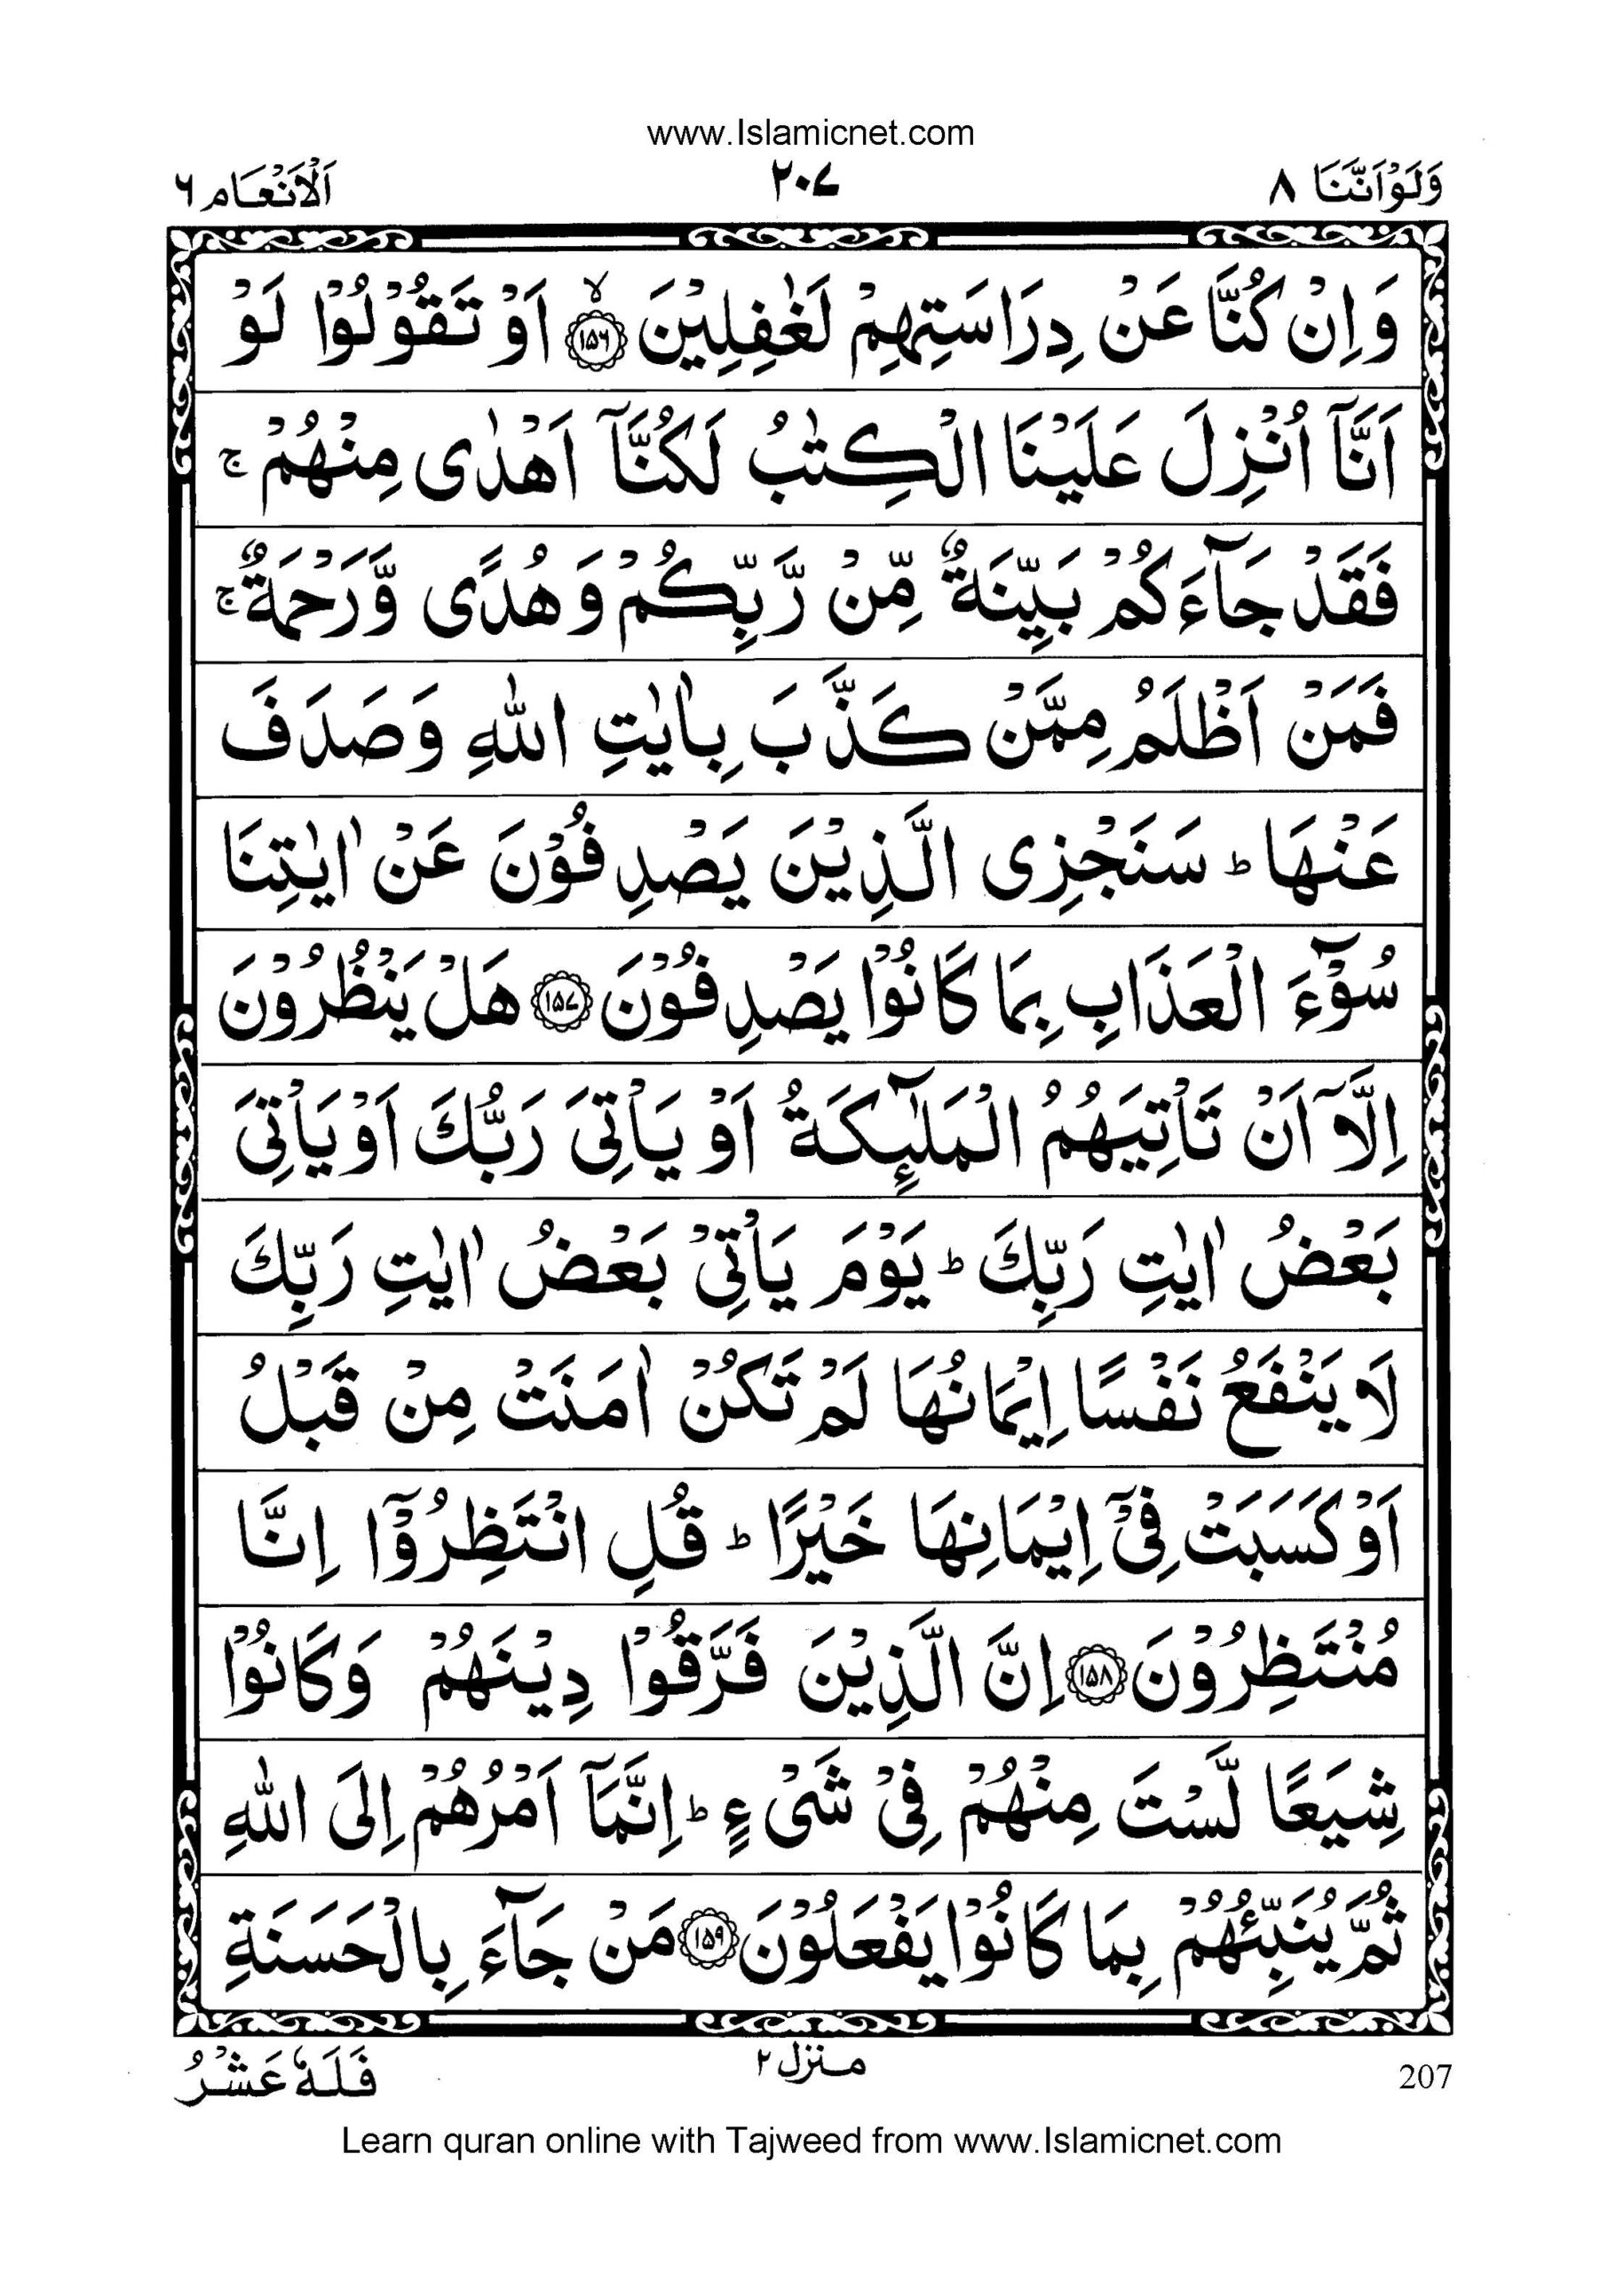 www.Islamicnet.com
وَلَوْاَنَّنَا ٨ ٢٠٧ اَلْاَنْعَام ٦
وَاِنْ كُنَّا عَنْ دِرَاسَتِهِمْ لَغٰفِلِيْنَ ۙ‏﴿۱۵۶﴾ اَوْ تَقُوْلُوْا لَوْ
اَنَّاۤ اُنْزِلَ عَلَيْنَا الْكِتٰبُ لَكُنَّاۤ اَهْدٰى مِنْهُمْ ۚ
فَقَدْ جَآءَكُمْ بَيِّنَةٌ مِّنْ رَّبِّكُمْ وَهُدًى وَّرَحْمَةٌ ۚ
فَمَنْ اَظْلَمُ مِمَّنْ كَذَّبَ بِاٰيٰتِ اللّٰهِ وَصَدَفَ
عَنْهَا ؕ سَنَجْزِى الَّذِيْنَ يَصْدِفُوْنَ عَنْ اٰيٰتِنَا
سُوْٓءَ الْعَذَابِ بِمَا كَانُوْا يَصْدِفُوْنَ ﴿۱۵۷﴾ هَلْ يَنْظُرُوْنَ
اِلَّاۤ اَنْ تَاْتِيَهُمُ الْمَلٰٓئِكَةُ اَوْ يَاْتِىَ رَبُّكَ اَوْ يَاْتِىَ
بَعْضُ اٰيٰتِ رَبِّكَ ؕ يَوْمَ يَاْتِىْ بَعْضُ اٰيٰتِ رَبِّكَ
لَا يَنْفَعُ نَفْسًا اِيْمَانُهَا لَمْ تَكُنْ اٰمَنَتْ مِنْ قَبْلُ
اَوْ كَسَبَتْ فِىْۤ اِيْمَانِهَا خَيْرًا ؕ قُلِ انْتَظِرُوْۤا اِنَّا
مُنْتَظِرُوْنَ ﴿۱۵۸﴾ اِنَّ الَّذِيْنَ فَرَّقُوْا دِيْنَهُمْ وَكَانُوْا
شِيَعًا لَّسْتَ مِنْهُمْ فِىْ شَىْءٍ ؕ اِنَّمَاۤ اَمْرُهُمْ اِلَى اللّٰهِ
ثُمَّ يُنَبِّئُهُمْ بِمَا كَانُوْا يَفْعَلُوْنَ ﴿۱۵۹﴾ مَنْ جَآءَ بِالْحَسَنَةِ
207 منزل ٢ فَلَهٗ عَشْرُ
Learn quran online with Tajweed from www.Islamicnet.com